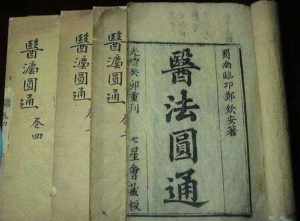 蜀南臨邛鄭欽安著
醫法圓通
光緒癸卯重刊
七星會藏板
醫灋圓通
醫灋圓通
醫灋圓通
卷四